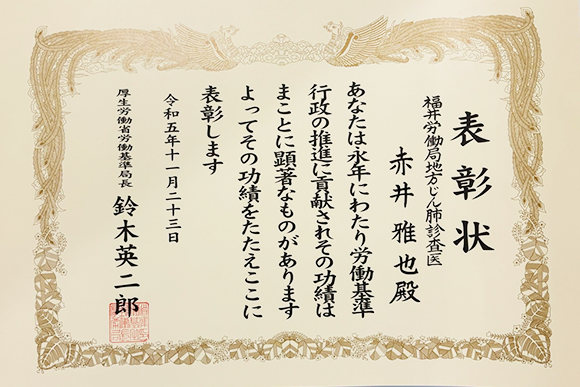 表彰状
福井労働局地方じん肺診査医
赤井雅也殿
あなたは永年にわたり労働基準
行政の推進に貢献されその功績は
まことに顕著なものがあります
よってその功績をたたえここに
表彰します
令和五年十一月二十三日
厚生労働省労働基準局長 鈴木英二郎